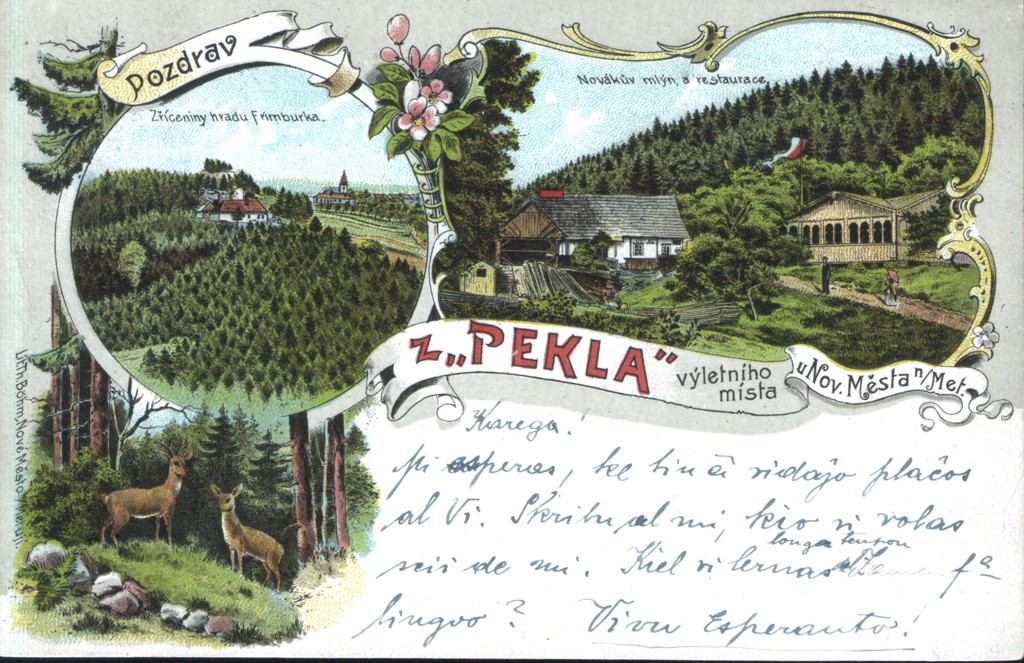 Pozdrav
Zříceniny hradu Frimburka.
Novákův mlýn, a restaurace
z „PEKLA”
výletního
místa
u Nov. Města n/Met.
Lith. Böhm, Nové Město
Karega!
Mi esperas, ke tiu ĉi vidaĵo plaĉos
al Vi. Skribu al mi, kio vi volas
longa tempon
scii de mi. Kiel vi lernas fa
lingvo? Vivu Esperanto!